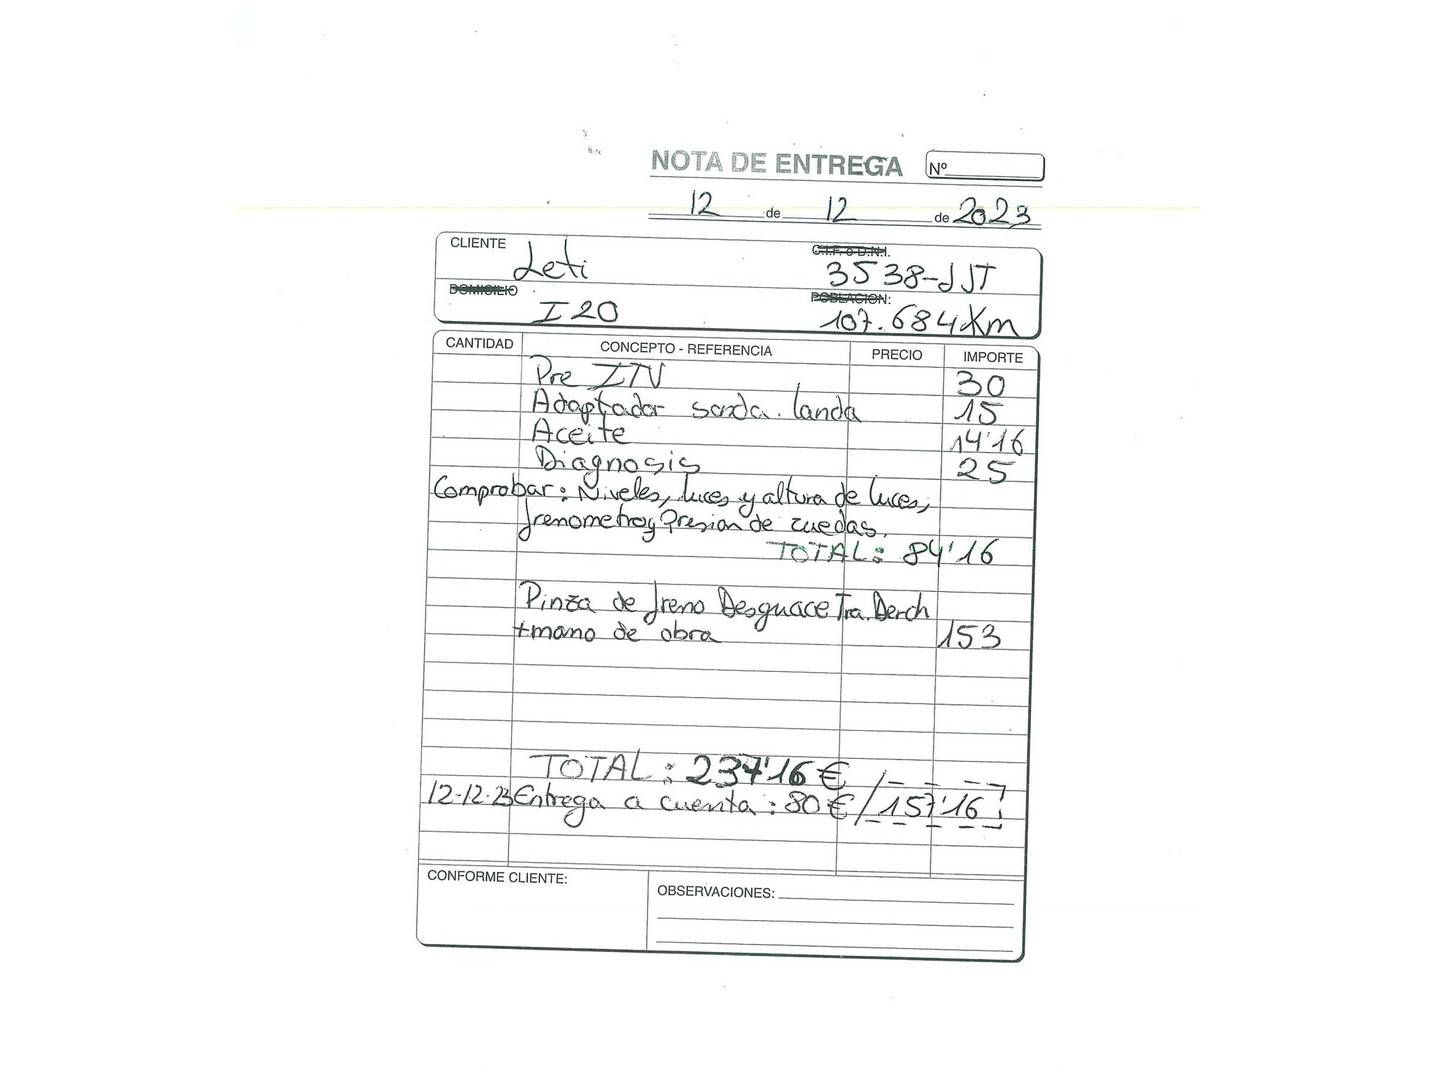 NOTA DE ENTREGA Nº
12 de 12 de 2023
CLIENTE Leti C.I.F. o D.N.I. 3538-JJT
DOMICILIO I20 POBLACION: 107.684 Km
CANTIDAD CONCEPTO - REFERENCIA PRECIO IMPORTE
Pre ITV 30
Adaptador sonda landa 15
Aceite 14'16
Diagnosis 25
Comprobar: Niveles, luces y altura de luces,
frenometro y Presion de ruedas.
TOTAL: 84'16
Pinza de freno Desguace Tra. Derch
+mano de obra 153
TOTAL: 237'16 €
12-12-23 Entrega a cuenta: 80 € / 157'16
CONFORME CLIENTE:
OBSERVACIONES: